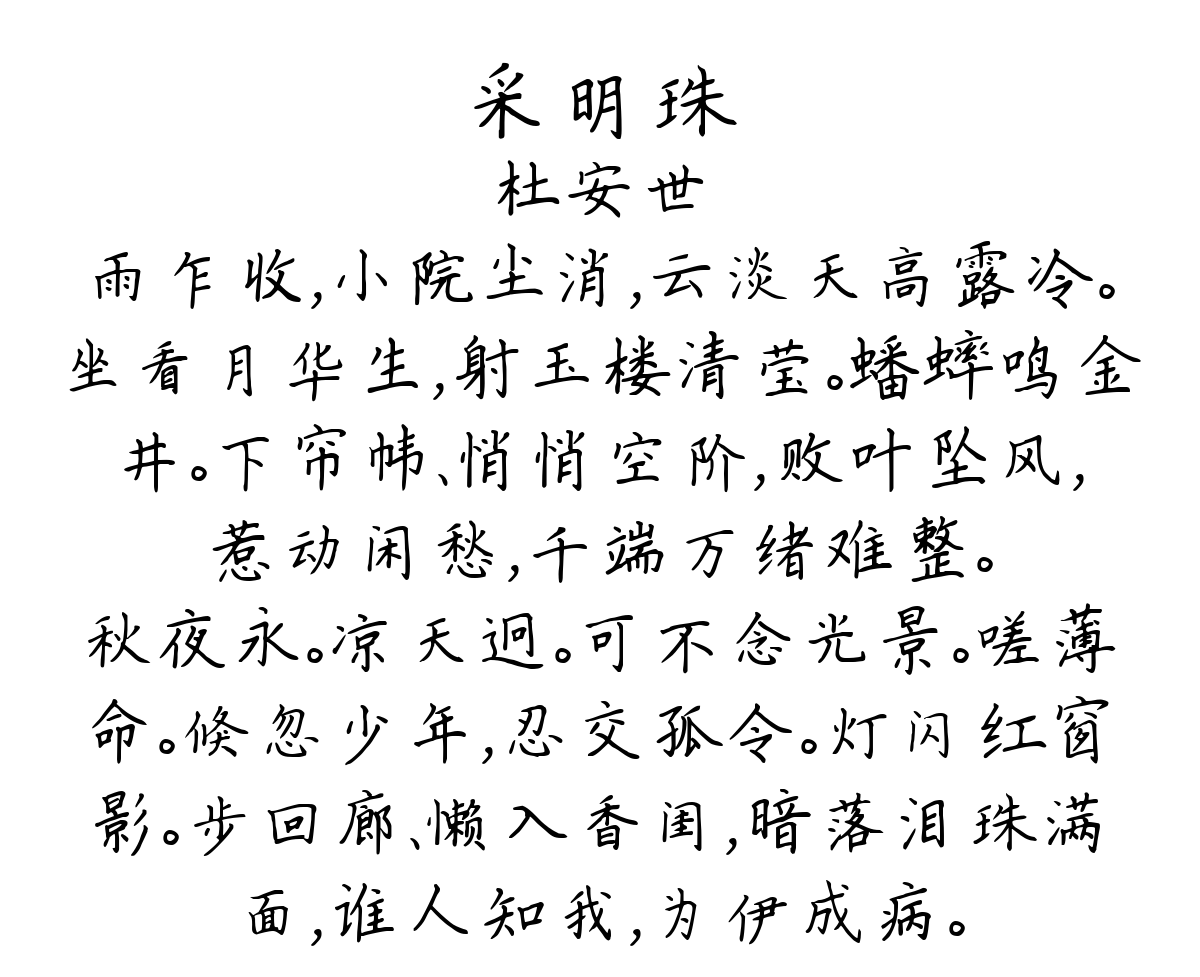 采明珠
杜安世
雨乍收,小院尘消,云淡天高露冷。
坐看月华生,射玉楼清莹。蟠蟀鸣金
井。下帘帏、悄悄空阶,败叶坠风,
惹动闲愁,千端万绪难整。
秋夜永。凉天迥。可不念光景。嗟薄
命。倏忽少年,忍交孤令。灯闪红窗
影。步回廊、懒入香闺,暗落泪珠满
面,谁人知我,为伊成病。